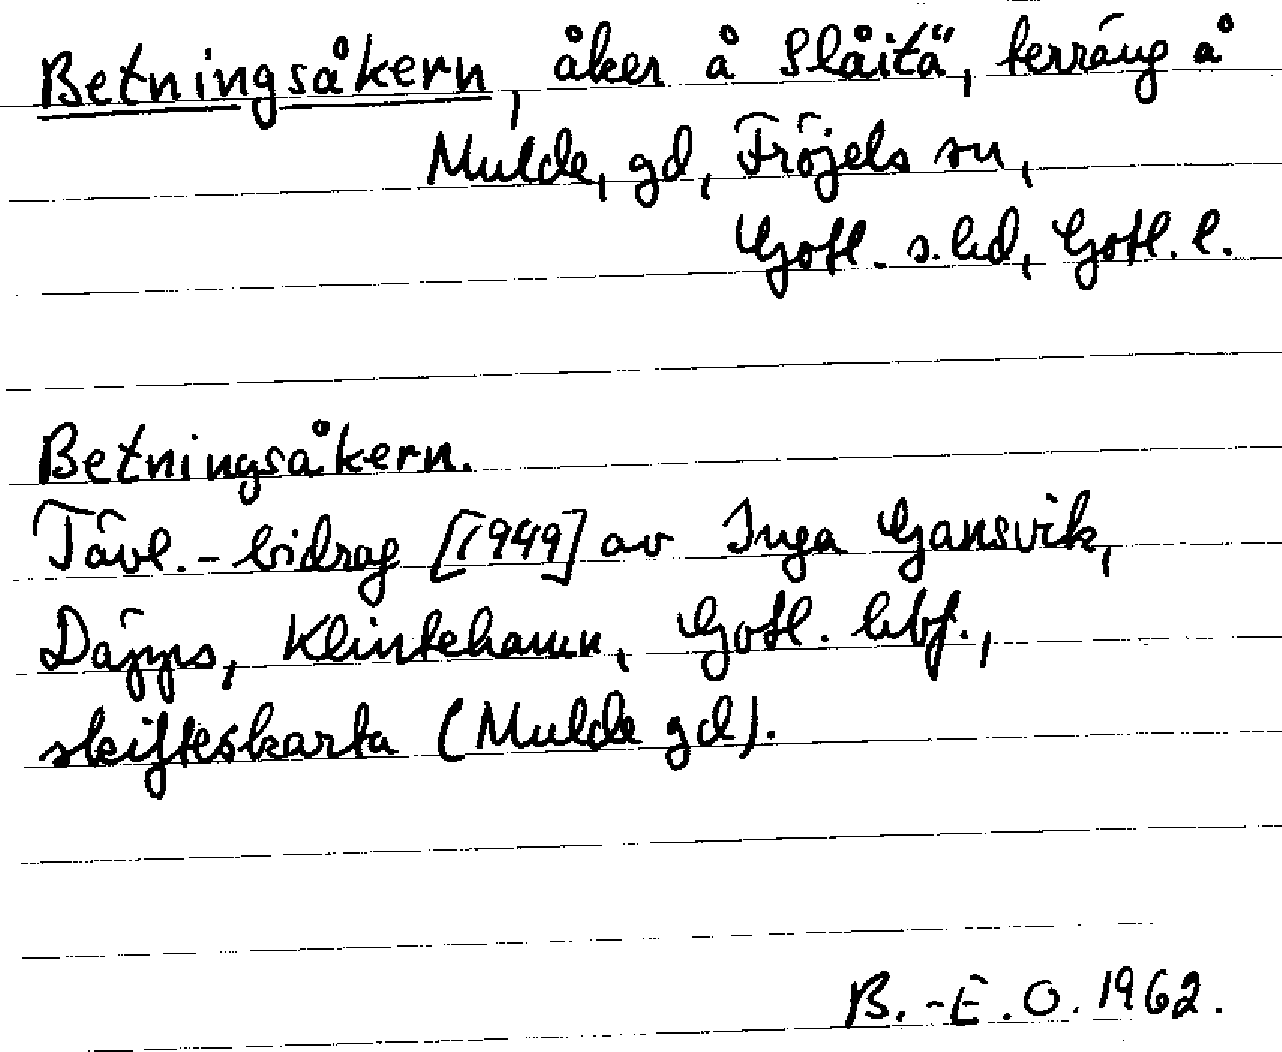 Betningsåkern, åker å Slåitä, terräng å
Mulde, gd, Fröjels sn,
Gotl. s. hd, Gotl. l.
Betningsåkern.
Tävl.-bidrag [1949] av Inga Gansvik,
Däpps, Klintehamn, Gotl. hbf.,
skifteskarta (Mulde gd).
B.-E.O. 1962.